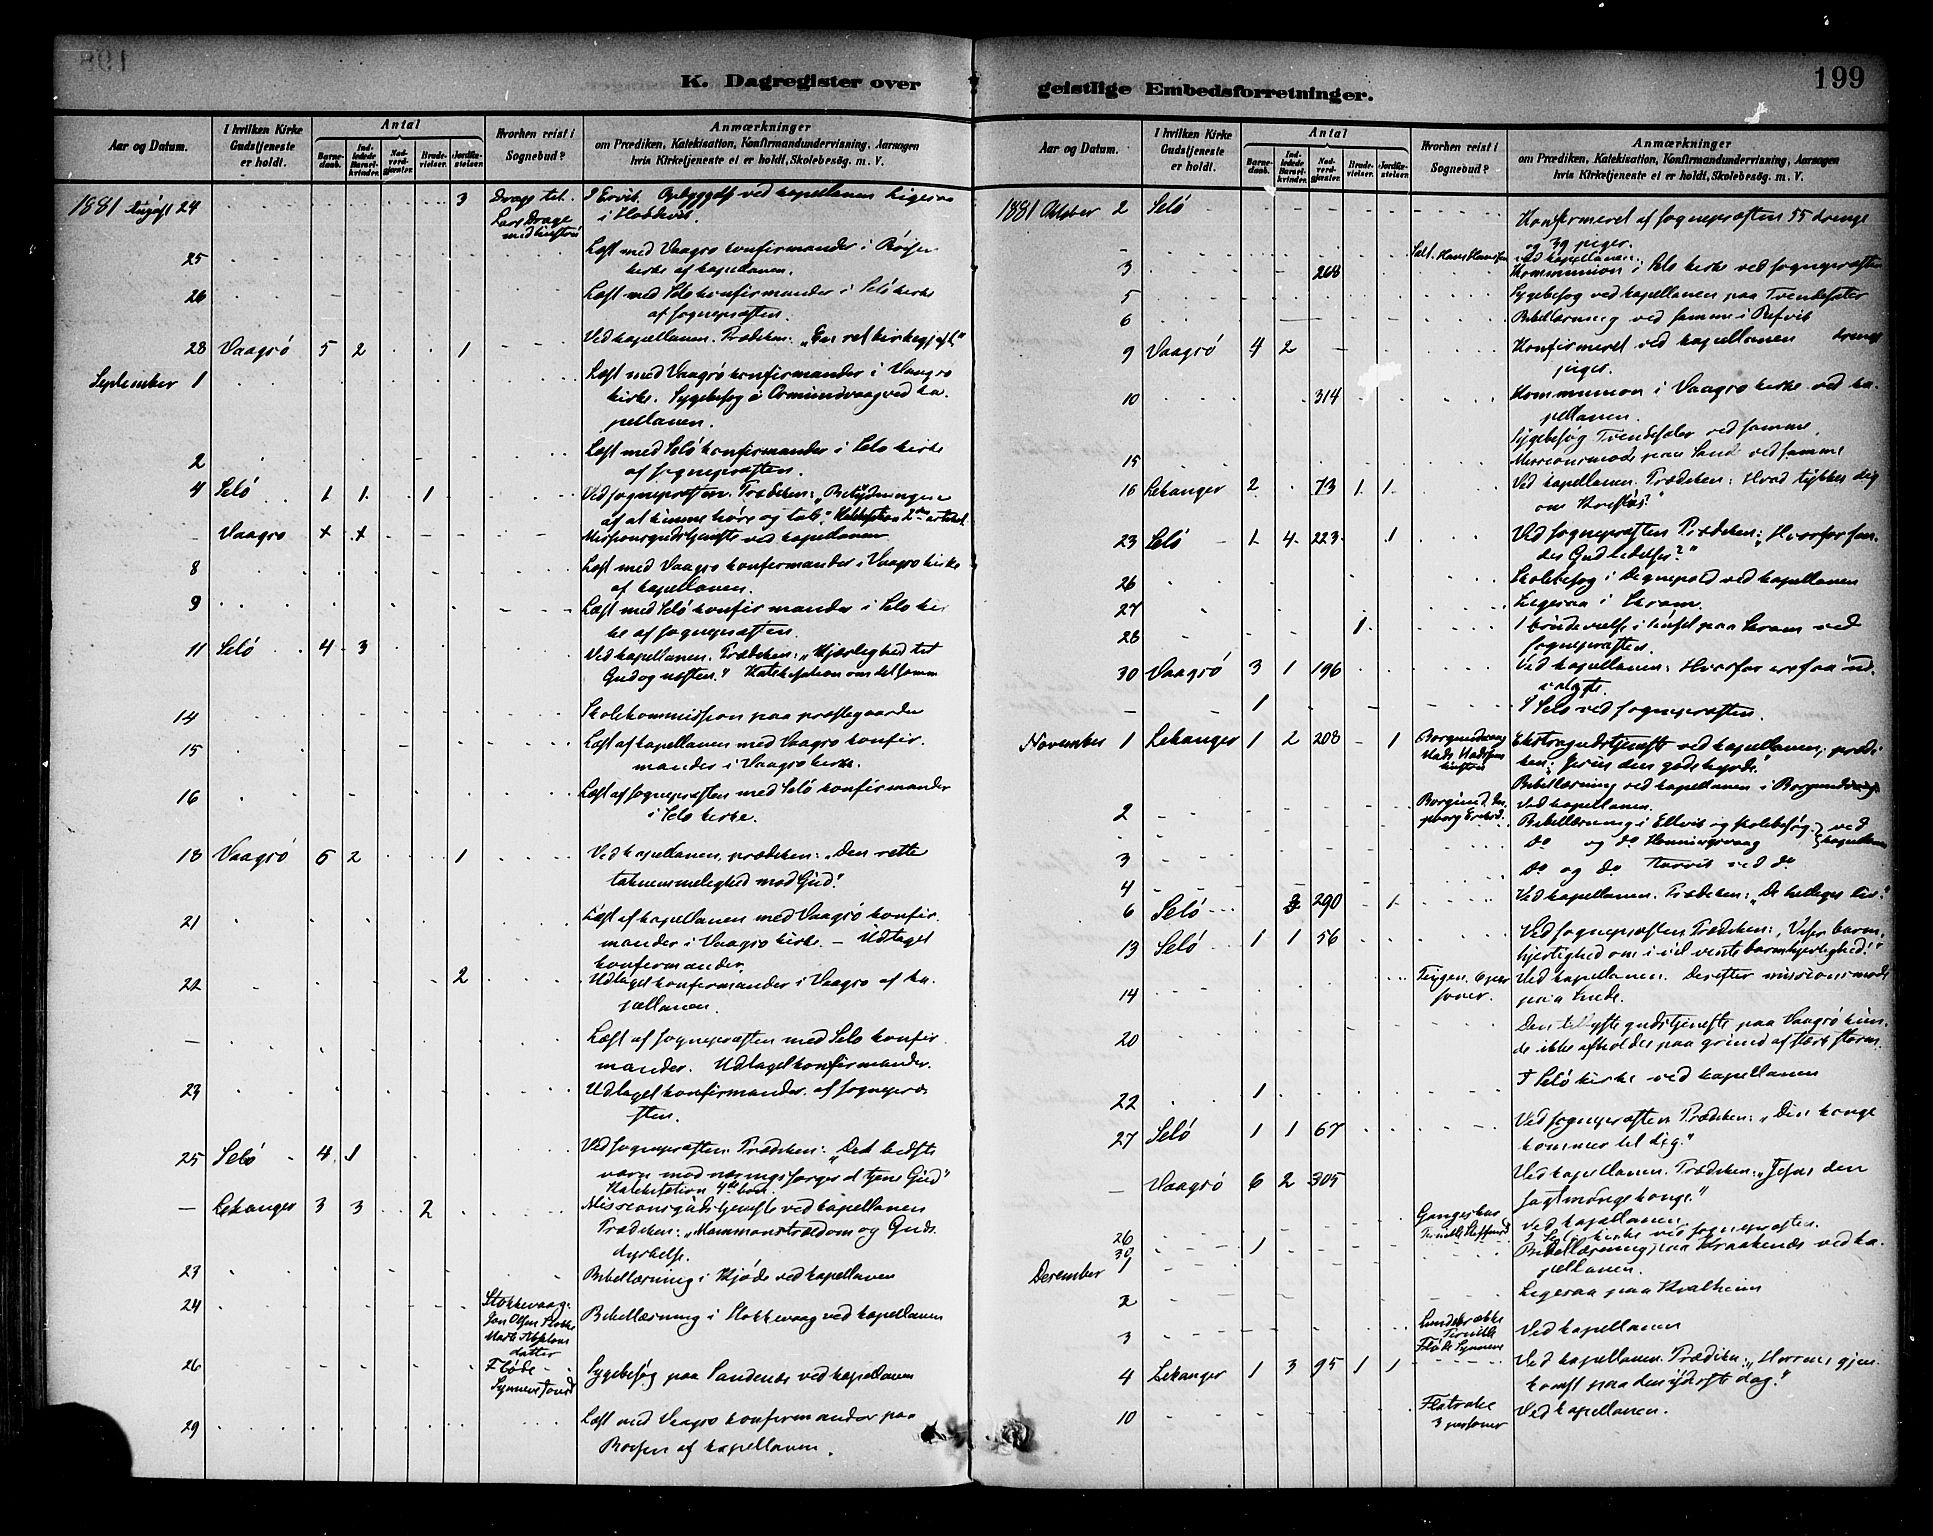 199
K. Dagregister over
geistlige Embedsforretninger.
Aar og Datum.
I hvilken Kirke Gudstjeneste er holdt.
Antal
Barnedaab.
Indledede Barselkvinder.
Nadverdgjæster.
Brudevielser.
Jordfæstelser.
Hvorhen reist i Sognebud?
Anmærkninger
om Prædiken, Katekisation, Konfirmandundervisning, Aarsagen
hvis Kirketjeneste ei er holdt, Skolebesög. m. V.
1881 August 24 3 Drage til Lars Drage med hustru I Ervik. Opbyggelse ved kapellanen Ligesaa
i Hoddevik.
25 Læst med Vaagsø konfirmander i
kirke af kapellanen.
26 Læst med Selø konfirmander i Selø kirke
af sognepræsten.
28 Vaagsø 5 2 1 Ved kapellanen. Prædiken: „En ret kirkegjest"
September 1 Læst med Vaagsø konfirmander i Vaagsø
kirke. Sygebesøg i Osmundvaag ved ka-
pellanen.
2 Læst med Selø konfirmander i Selø kirke
af sognepræsten.
4 Selø 1 1 1 Ved sognepræsten. Prædiken: „Betydningen
af at kunne høre og tale". Katekisation 2den artikel.
- Vaagsø + + Missionsgudstjeneste ved kapellanen
8 Læst med Vaagsø konfirmander i Vaagsø kirke
af kapellanen.
9 Læst med Selø konfirmander i Selø kir
ke af sognepræsten.
11 Selø 4 3 Ved kapellanen. Prædiken: „Kjærlighed til
Gud og næsten." Katekisation om det samme
14 Skolekommission paa præstegaarden
15 Læst af kapellanen med Vaagsø konfir.
mander i Vaagsø kirke.
16 Læst af sognepræsten med Selø konfirmander
i Selø kirke.
18 Vaagsø 6 2 1 Ved kapellanen, prædiken: „Den rette
taknemmelighed mod Gud"
21 Læst af kapellanen med Vaagsø konfir.
mander i Vaagsø kirke. – Udtaget
konfirmander.
22 2 Udtaget konfirmander i Vaagsø af ka.
pellanen.
- Læst af sognepræsten med Selø konfir
mander. Udtaget konfirmander.
23 Udtaget konfirmander af sognepræ
sten.
25 Selø 4 1 Ved sognepræsten. Prædiken: „Det bedste
værn mod næringssorger at tjene Gud"
Katekisation 4de bud.
- Lekanger 3 3 2 Missionsgudstjeneste ved kapellanen
Prædiken: „Mammonstrældom og Guds
dyrkelse.
23 Bibellæsning i Kjøde ved kapellanen
24 Stokkevaag: datter Bibellæsning i Stokkevaag ved kapellanen
26 Fløde Sygebesøg paa Sandenes ved kapellanen
29 Læst med Vaagsø konfirmander paa
af kapellanen.
Aar og Datum.
I hvilken Kirke Gudstjeneste er holdt.
Antal
Barnedaab.
Indledede Barselkvinder.
Nadverdgjæster.
Brudevielser.
Jordfæstelser.
Hvorhen reist i Sognebud?
Anmærkninger
om Prædiken, Katekisation, Konfirmandundervisning, Aarsagen
hvis Kirketjeneste ei er holdt, Skolebesög. m. V.
1881 Oktober 2 Selø Konfirmeret af sognepræsten 55 drenge
og 39 piger.
- ved kapellanen.
3 268 Kommunion i Selø kirke ved sognepræsten
5 Sygebesøg ved kapellanen paa
6 Bibellæsning ved samme i Refvik
9 Vaagsø 4 2 Konfirmeret ved kapellanen drenge
piger.
10 314 Kommunion i Vaagsø kirke ved ka.
pellanen.
Sygebesøg ved samme
15 Missionsmøde paa ved samme
16 Lekanger 2 73 1 1 Ved kapellanen. Prædiken: Hvad tykkes dig
om Kristus?"
23 Selø 1 4 223 1 Ved sognepræsten Prædiken: „Hvorfor sen-
der Gud lidelser?"
26 Skolebesøg i Degnepold ved kapellanen
27 Ligesaa i Skram.
28 1 1 brudevielse i huset paa Skram ved
sognepræsten.
30 Vaagsø 3 1 196 Ved kapellanen: Hvorfor ere faa ud.
valgte.
- 1 I Selø ved sognepræsten.
November 1 Lekanger 1 2 208 1 Borgundvaag Ekstragudstjeneste ved kapellanen; prædi
ken: „Jesus den gode hyrde"
Bibellæsning ved kapellanen i Borgundvaag
2 ved kapellanen.
Bibellæsning i Ellvik og skolebesøg } ved
3 do og do Honningsvaag } kapellanen
4 do og do ved do
6 Selø 3 290 1 Ved kapellanen. Prædiken: „De helliges liv."
13 Selø 1 1 56 Ved sognepræsten Prædiken: „Viser barm
hjertighed om i vil vente barmhjertighed!"
14 personer. Ved kapellanen. Derefter missionsmøde
paa
20 Den tillyste gudstjeneste paa Vaagsø kun.
de ikke afholdes paa grund af stærk storm.
22 1 I Selø kirke ved kapellanen
27 Selø 1 1 67 Ved sognepræsten Prædiken: „Din konge
kommer til dig."
- Vaagsø 6 2 305 Ved kapellanen. Prædiken: „Jesus den
sagtmodige konge."
26 Ved kapellanen.
30 1 I Selø kirke ved sognepræsten.
December 1 Bibellæsning paa Kraakenæs ved ka.
pellanen.
2 Ligesaa paa Kvalheim
3 Ved kapellanen
4 Lekanger 1 3 95 1 1 Ved kapellanen. Prædiken: „Herrens gjen
komst paa den yderste dag."
10 Flatrake 3 personer Ved kapellanen.